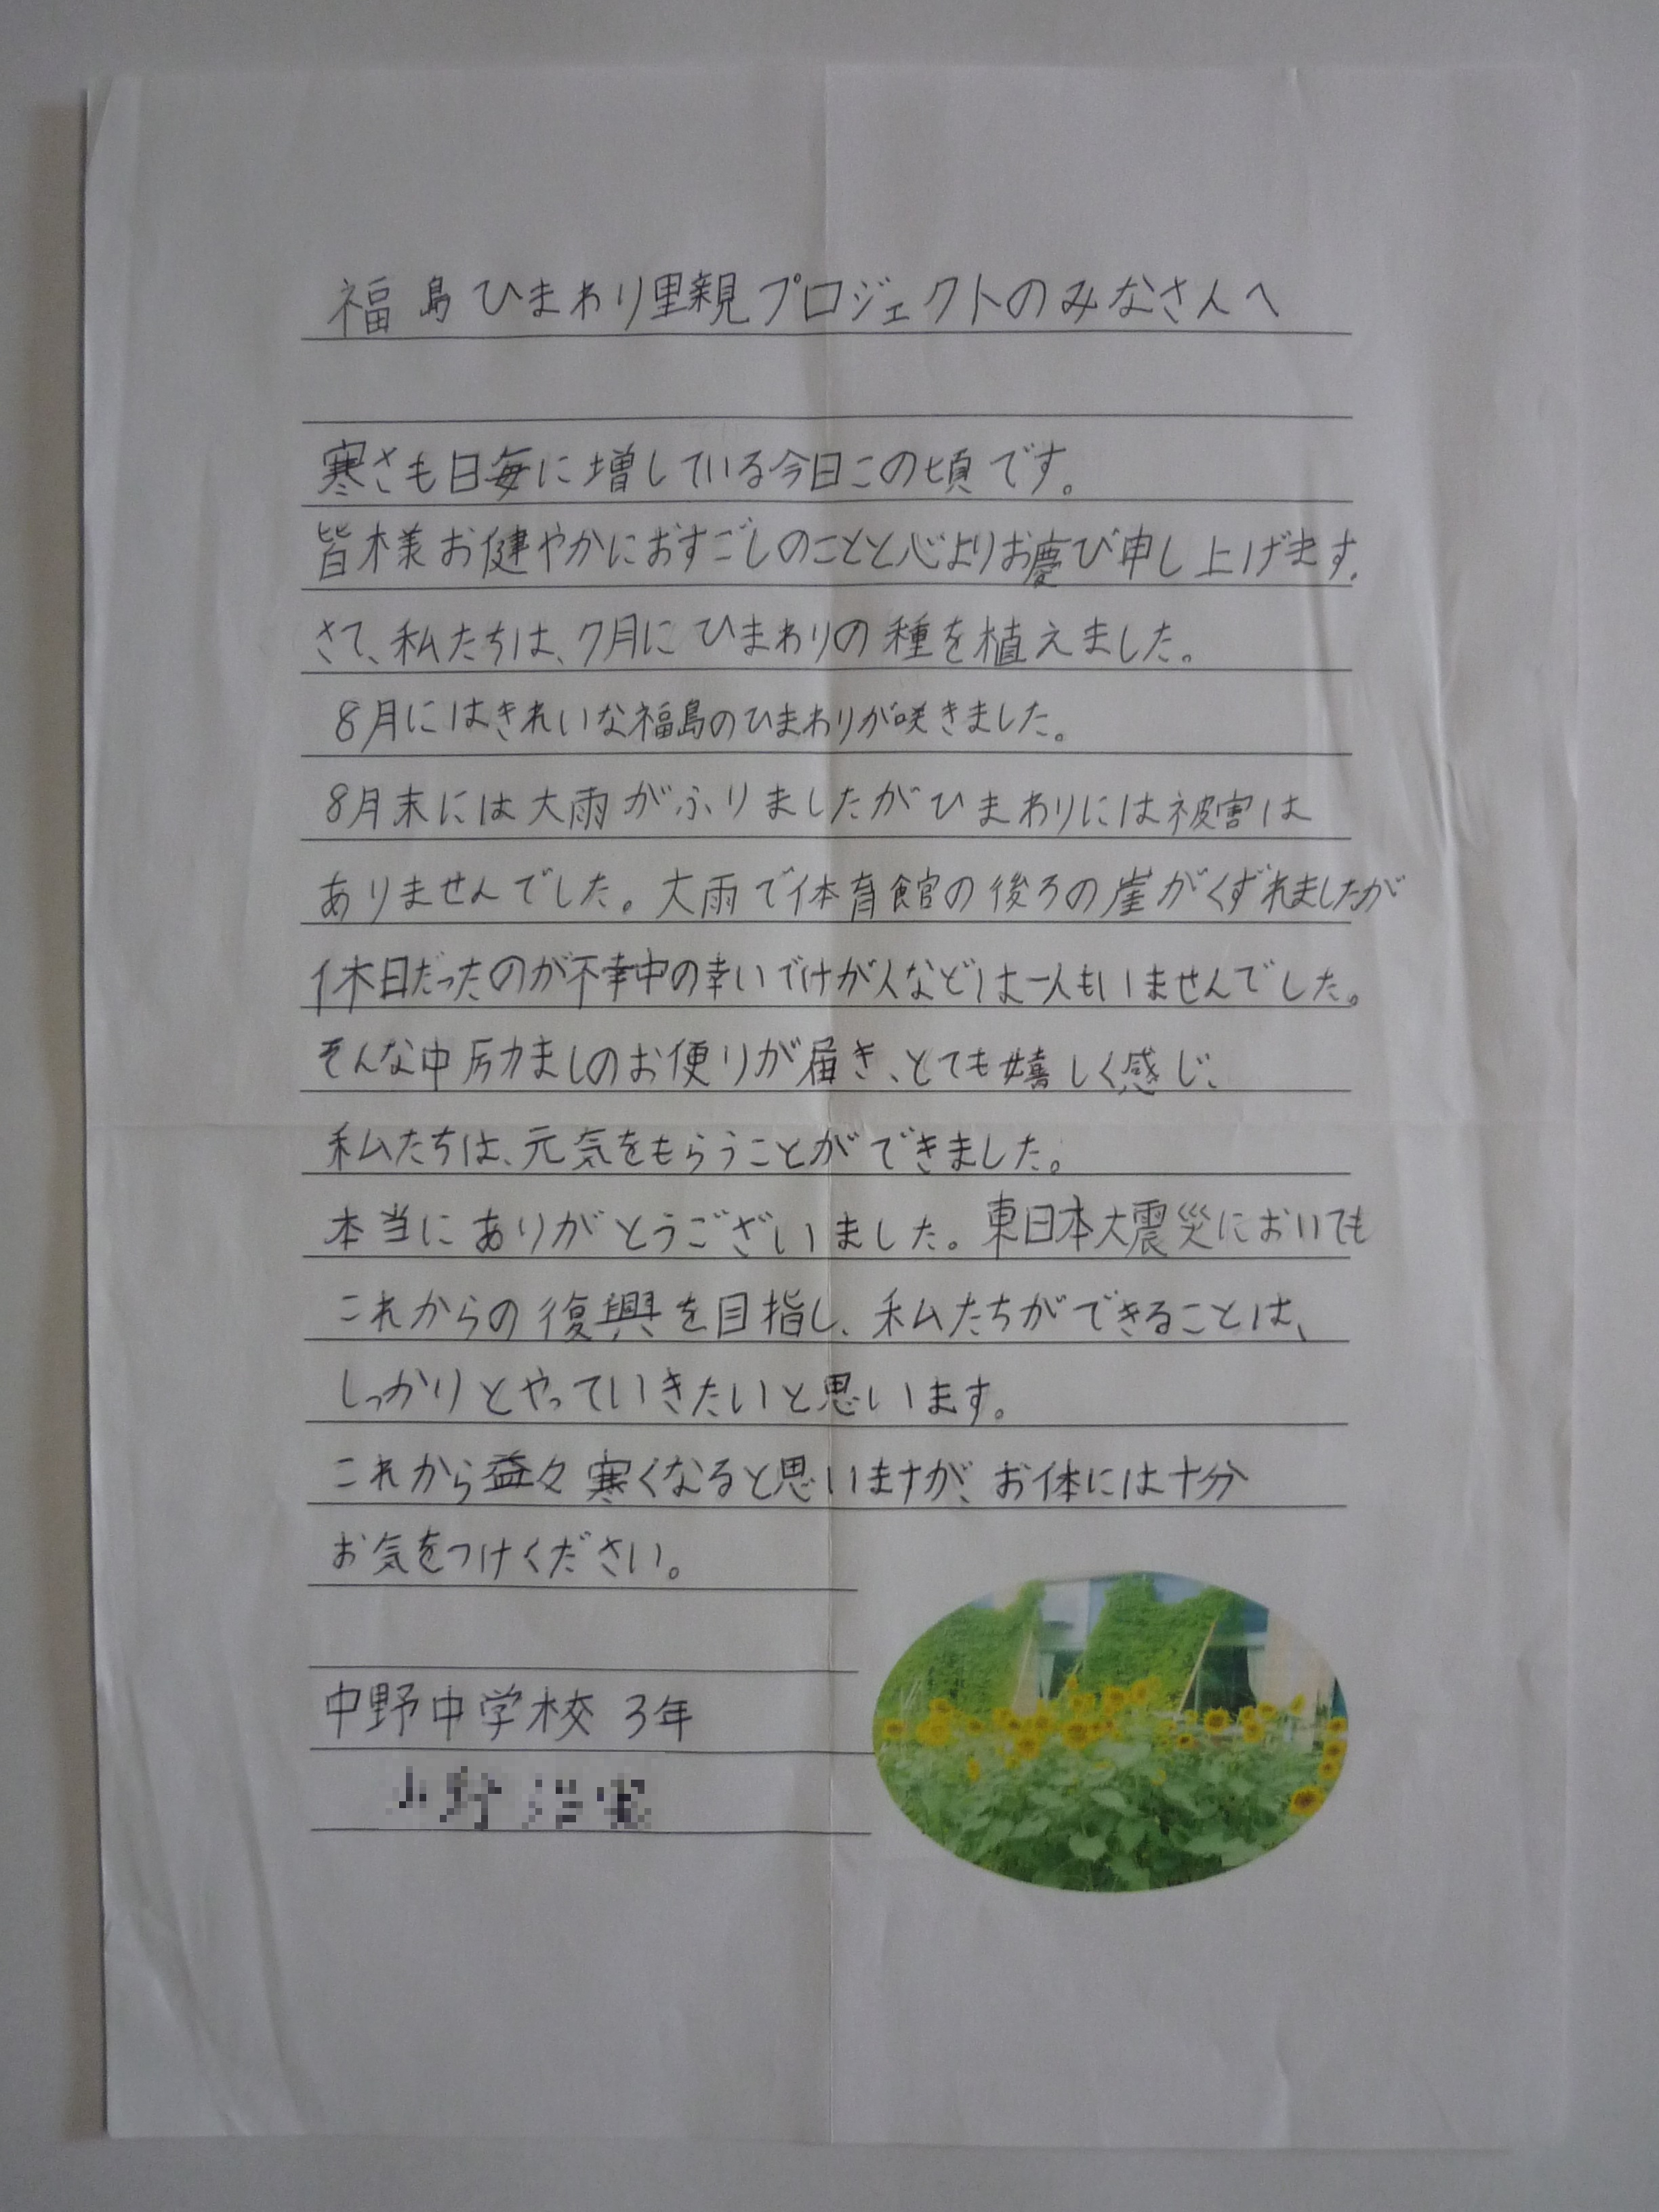 福島ひまわり里親プロジェクトのみなさんへ
寒さも日毎に増している今日この頃です。
皆様お健やかにおすごしのことと心よりお慶び申し上げます。
さて、私たちは、7月にひまわりの種を植えました。
8月にはきれいな福島のひまわりが咲きました。
8月末には大雨がふりましたがひまわりには被害は
ありませんでした。大雨で体育館の後ろの崖がくずれましたが
休日だったのが不幸中の幸いでけが人などは一人もいませんでした。
そんな中励ましのお便りが届き、とても嬉しく感じ、
私たちは、元気をもらうことができました。
本当にありがとうございました。東日本大震災においても
これからの復興を目指し、私たちができることは、
しっかりとやっていきたいと思います。
これから益々寒くなると思いますが、お体には十分
お気をつけください。
中野中学校 3年